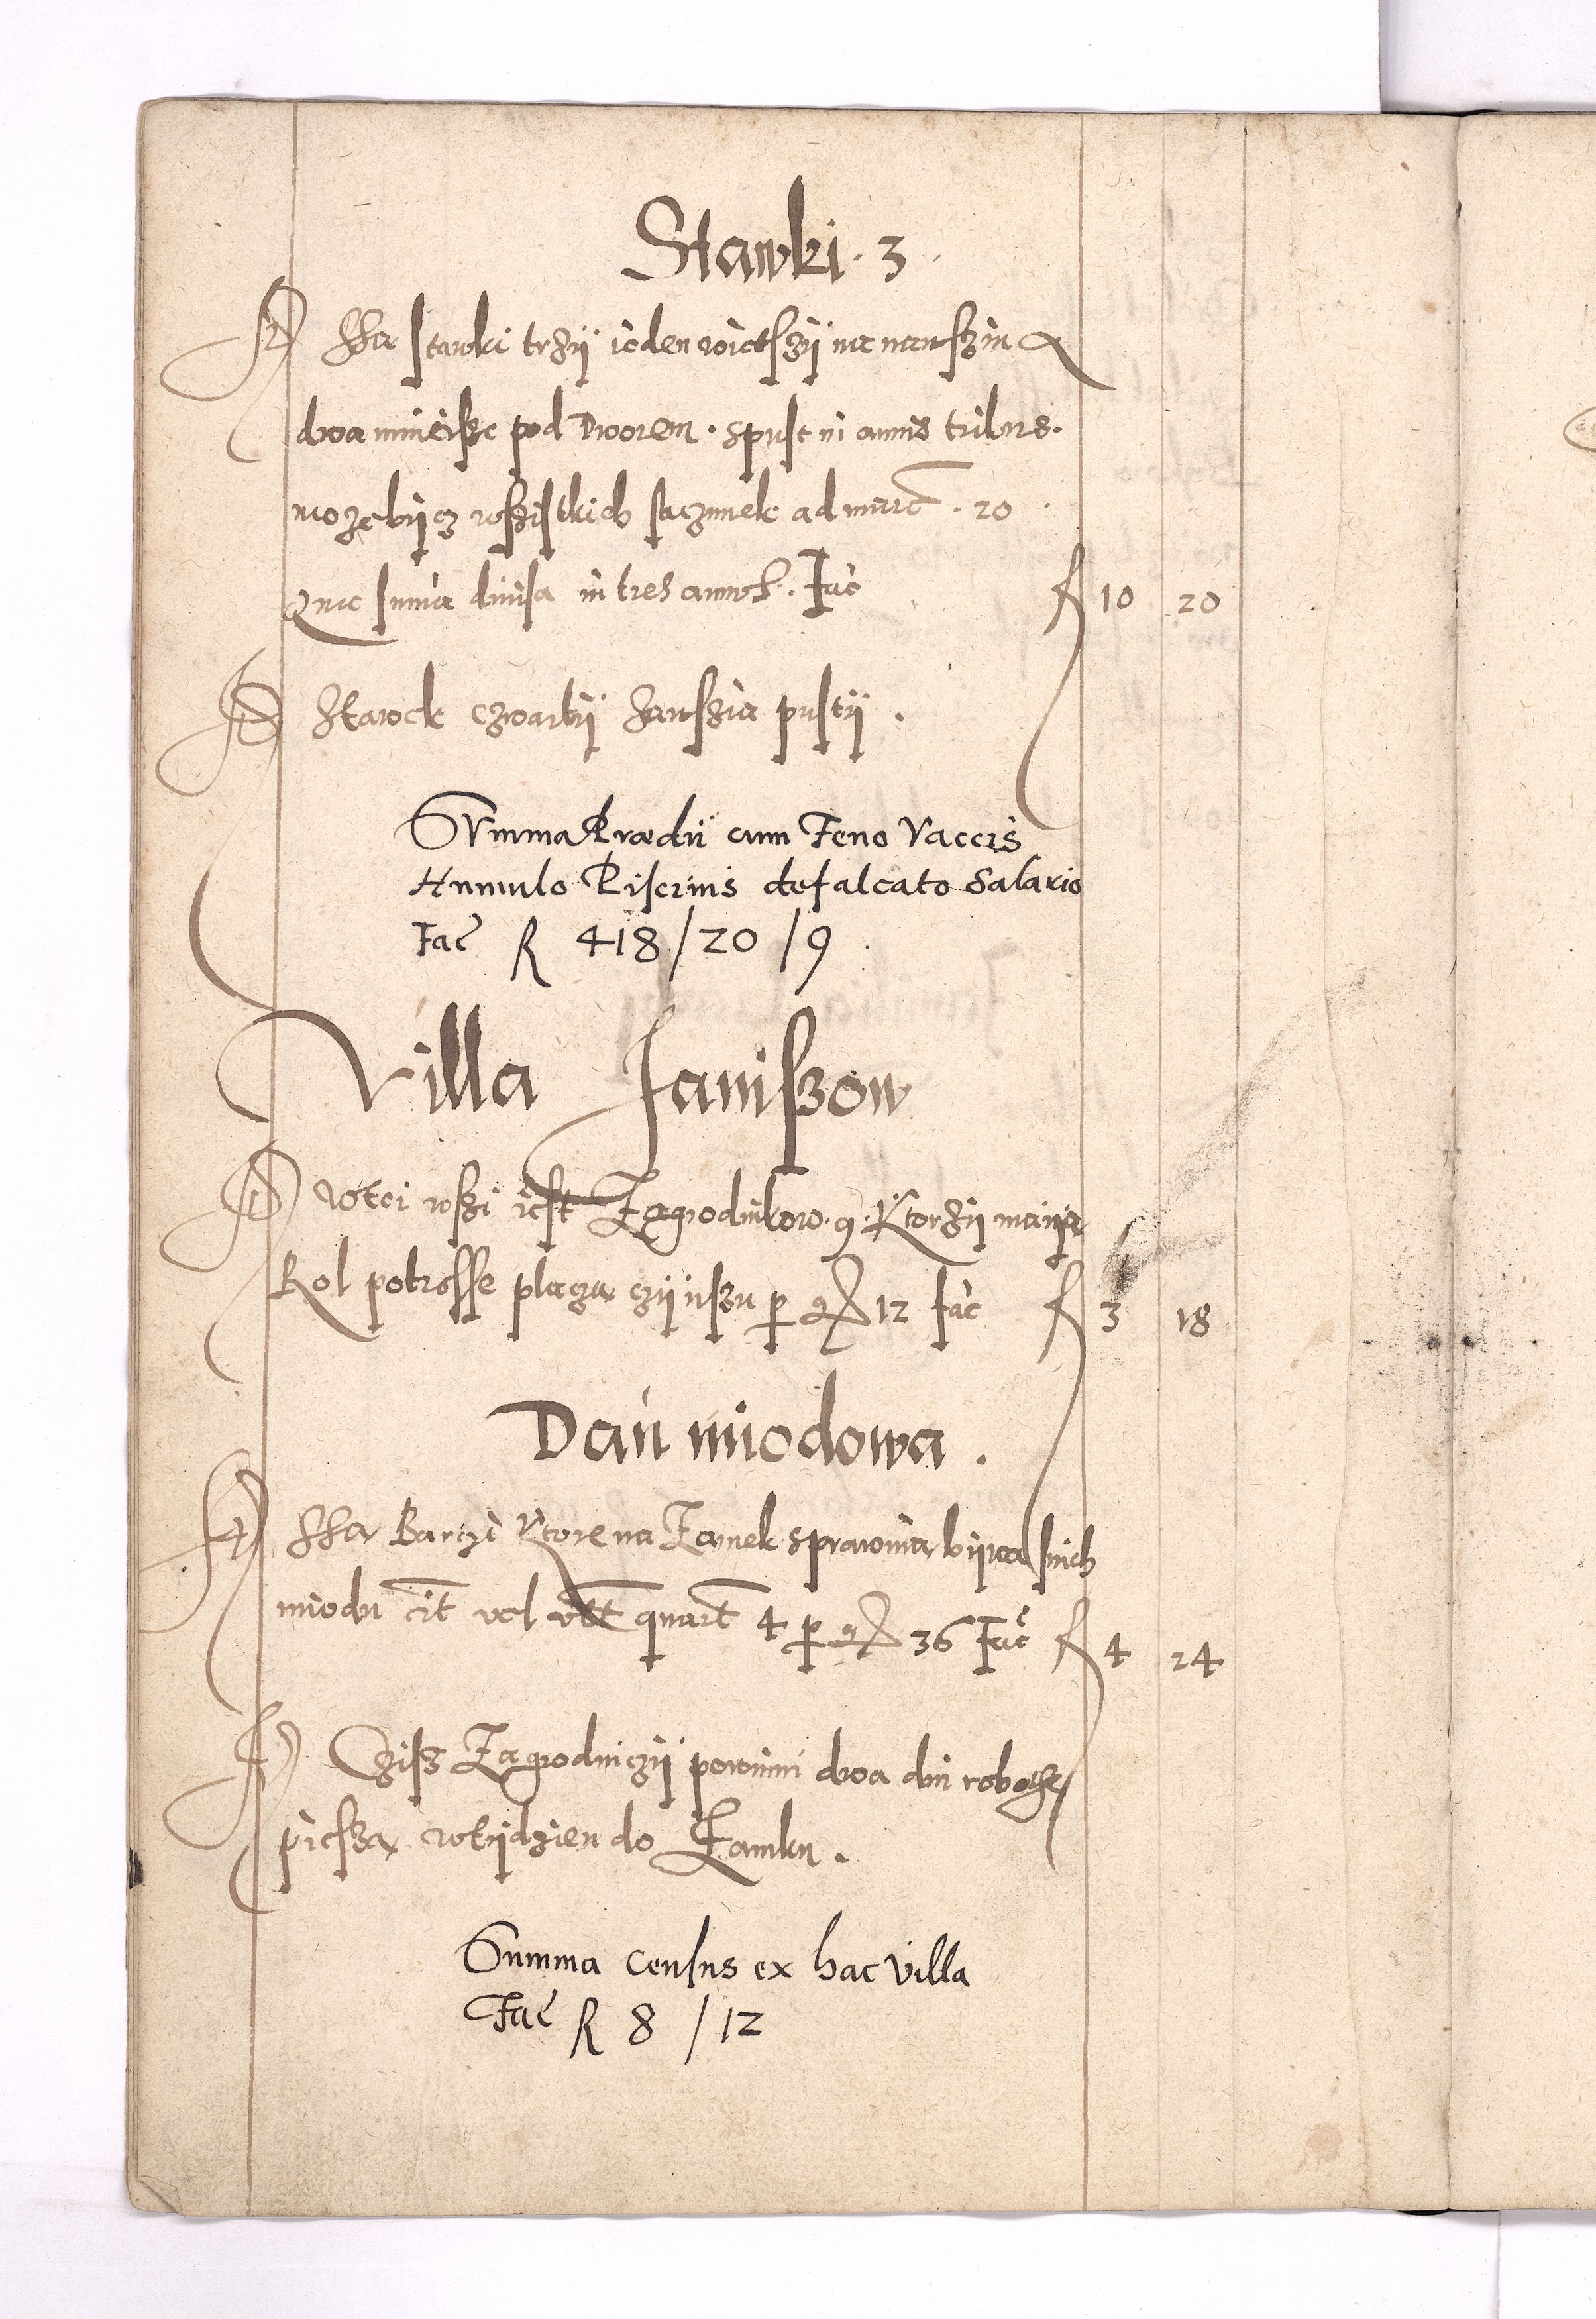 Stawki · 3 ·
Ssa stawki trzÿ ieden wietszÿ na nanszin
dwa mnieisze pod Dworem · spust in annis tribus ·
może bÿcz wszistkich saczunek ad marc · 20 ·
Quae suma diuisa in tres annos · Fac̃ R 10 20
Stawek czwartÿ Janszia pustÿ ·
Summa Prædii cum Feno Vaccis
Humulo Piscinis defalcato Salario
Fac̃ R 418 / 20 / 9
Villa Janiszow
W tei wszi iest Zagrodnikow · 9 · Ktorzÿ maija
Rol potrosse placza czÿnszu p 12 fac̃ R 3 18
Dań miodowa ·
Ssa Barczi Ktore na Zamek sprawuia bÿwa snich
miodu cit̃ vel vltt quart̃ 4 p 36 Fac̃ R 4 24
Cziſz Zagrodniczÿ powinni dwa dni robothe
piesza wtÿdzien do Zamku ·
Summa census ex hac villa
Fac̃ R 8 / 12